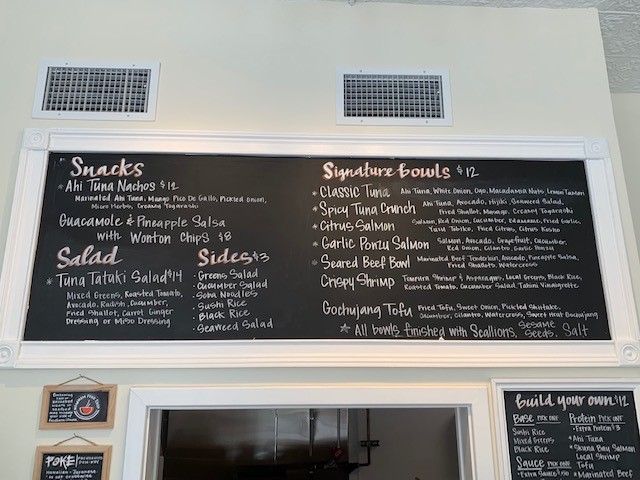 Snacks
* Ahi Tuna Nachos $12
Marinated Ahi Tuna, Mango Pico De Gallo, Pickled Onion,
Micro Herbs, Creamy Togarashi
Guacamole & Pineapple Salsa
with Wonton Chips $8
Salad
* Tuna Tataki Salad $14
Mixed Greens, Roasted Tomato,
Avocado, Radish, Cucumber,
Fried Shallot, Carrot Ginger
Dressing or Miso Dressing
Sides $3
· Greens Salad
· Cucumber Salad
· Soba Noodles
· Sushi Rice
· Black Rice
· Seaweed Salad
Signature Bowls $12
* Classic Tuna Ahi Tuna, White Onion, Ogo, Macadamia Nuts, Lemon Tamari
* Spicy Tuna Crunch Ahi Tuna, Avocado, Hijiki, Seaweed Salad,
Fried Shallot, Masago, Creamy Togarashi
* Citrus Salmon Salmon, Red Onion, Cucumber, Edamame, Fried Garlic,
Yuzu Tobiko, Fried Citrus, Citrus Kosho
* Garlic Ponzu Salmon Salmon, Avocado, Grapefruit, Cucumber,
Red Onion, Cilantro, Garlic Ponzu
* Seared Beef Bowl Marinated Beef Tenderloin, Avocado, Pineapple Salsa,
Fried Shallots, Watercress
Crispy Shrimp Tempura Shrimp & Asparagus, Local Greens, Black Rice,
Roasted Tomato, Cucumber Salad, Tahini Vinaigrette
Gochujang Tofu Fried Tofu, Sweet Onion, Pickled Shiitake,
Cucumber, Cilantro, Watercress, Sweet Heat Gochujang
All bowls finished with Scallions, Sesame Seeds, Salt
POKE
Build your own $12
Base Pick One
Sushi Rice
Mixed Greens
Black Rice
Sauce Pick One
Protein Pick One
* Ahi Tuna
* Skuna Bay Salmon
Local Shrimp
Tofu
* Marinated Beef